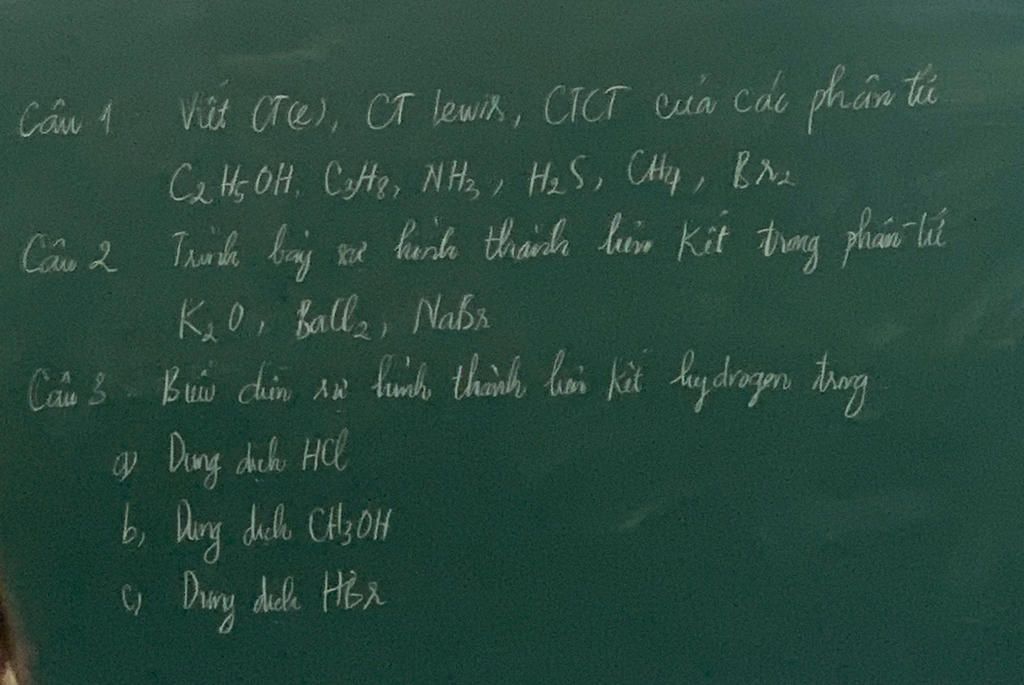 Câu 1 Viết CT(e), CT Lewis, CTCT của các phân tử
C₂H₅OH, C₃H₈, NH₃, H₂S, CH₄, Br₂
Câu 2 Trình bày sự hình thành liên kết trong phân tử
K₂O, BaCl₂, NaBr
Câu 3 Biểu diễn sự hình thành liên kết hydrogen trong
a) Dung dịch HCl
b, Dung dịch CH₃OH
c) Dung dịch HBr